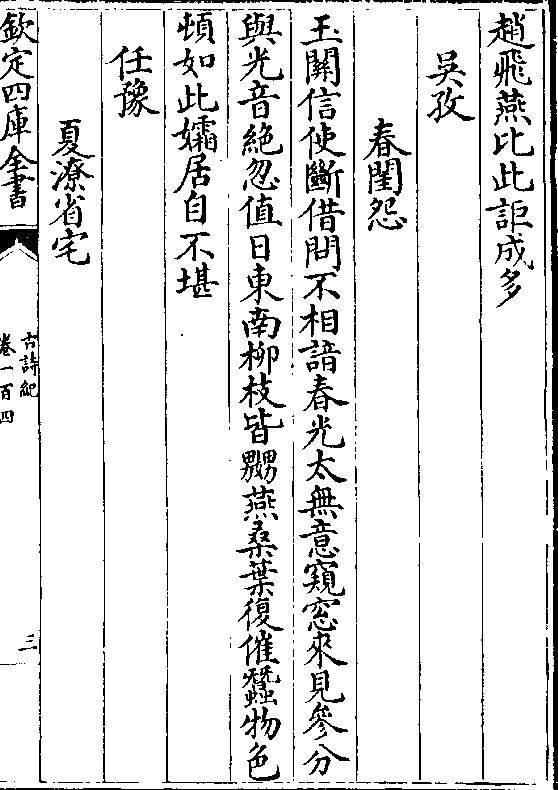 趙飛燕比此詎成多
吳孜
春閨怨
玉關信使斷借問不相諳春光太無意窺窓來見參分
與光音絶忽值日東南柳枝皆嬲燕桑葉復催蠶物色
頓如此孀居自不堪
任豫
夏潦省宅
欽定四庫全書
古詩紀
卷一百四
三